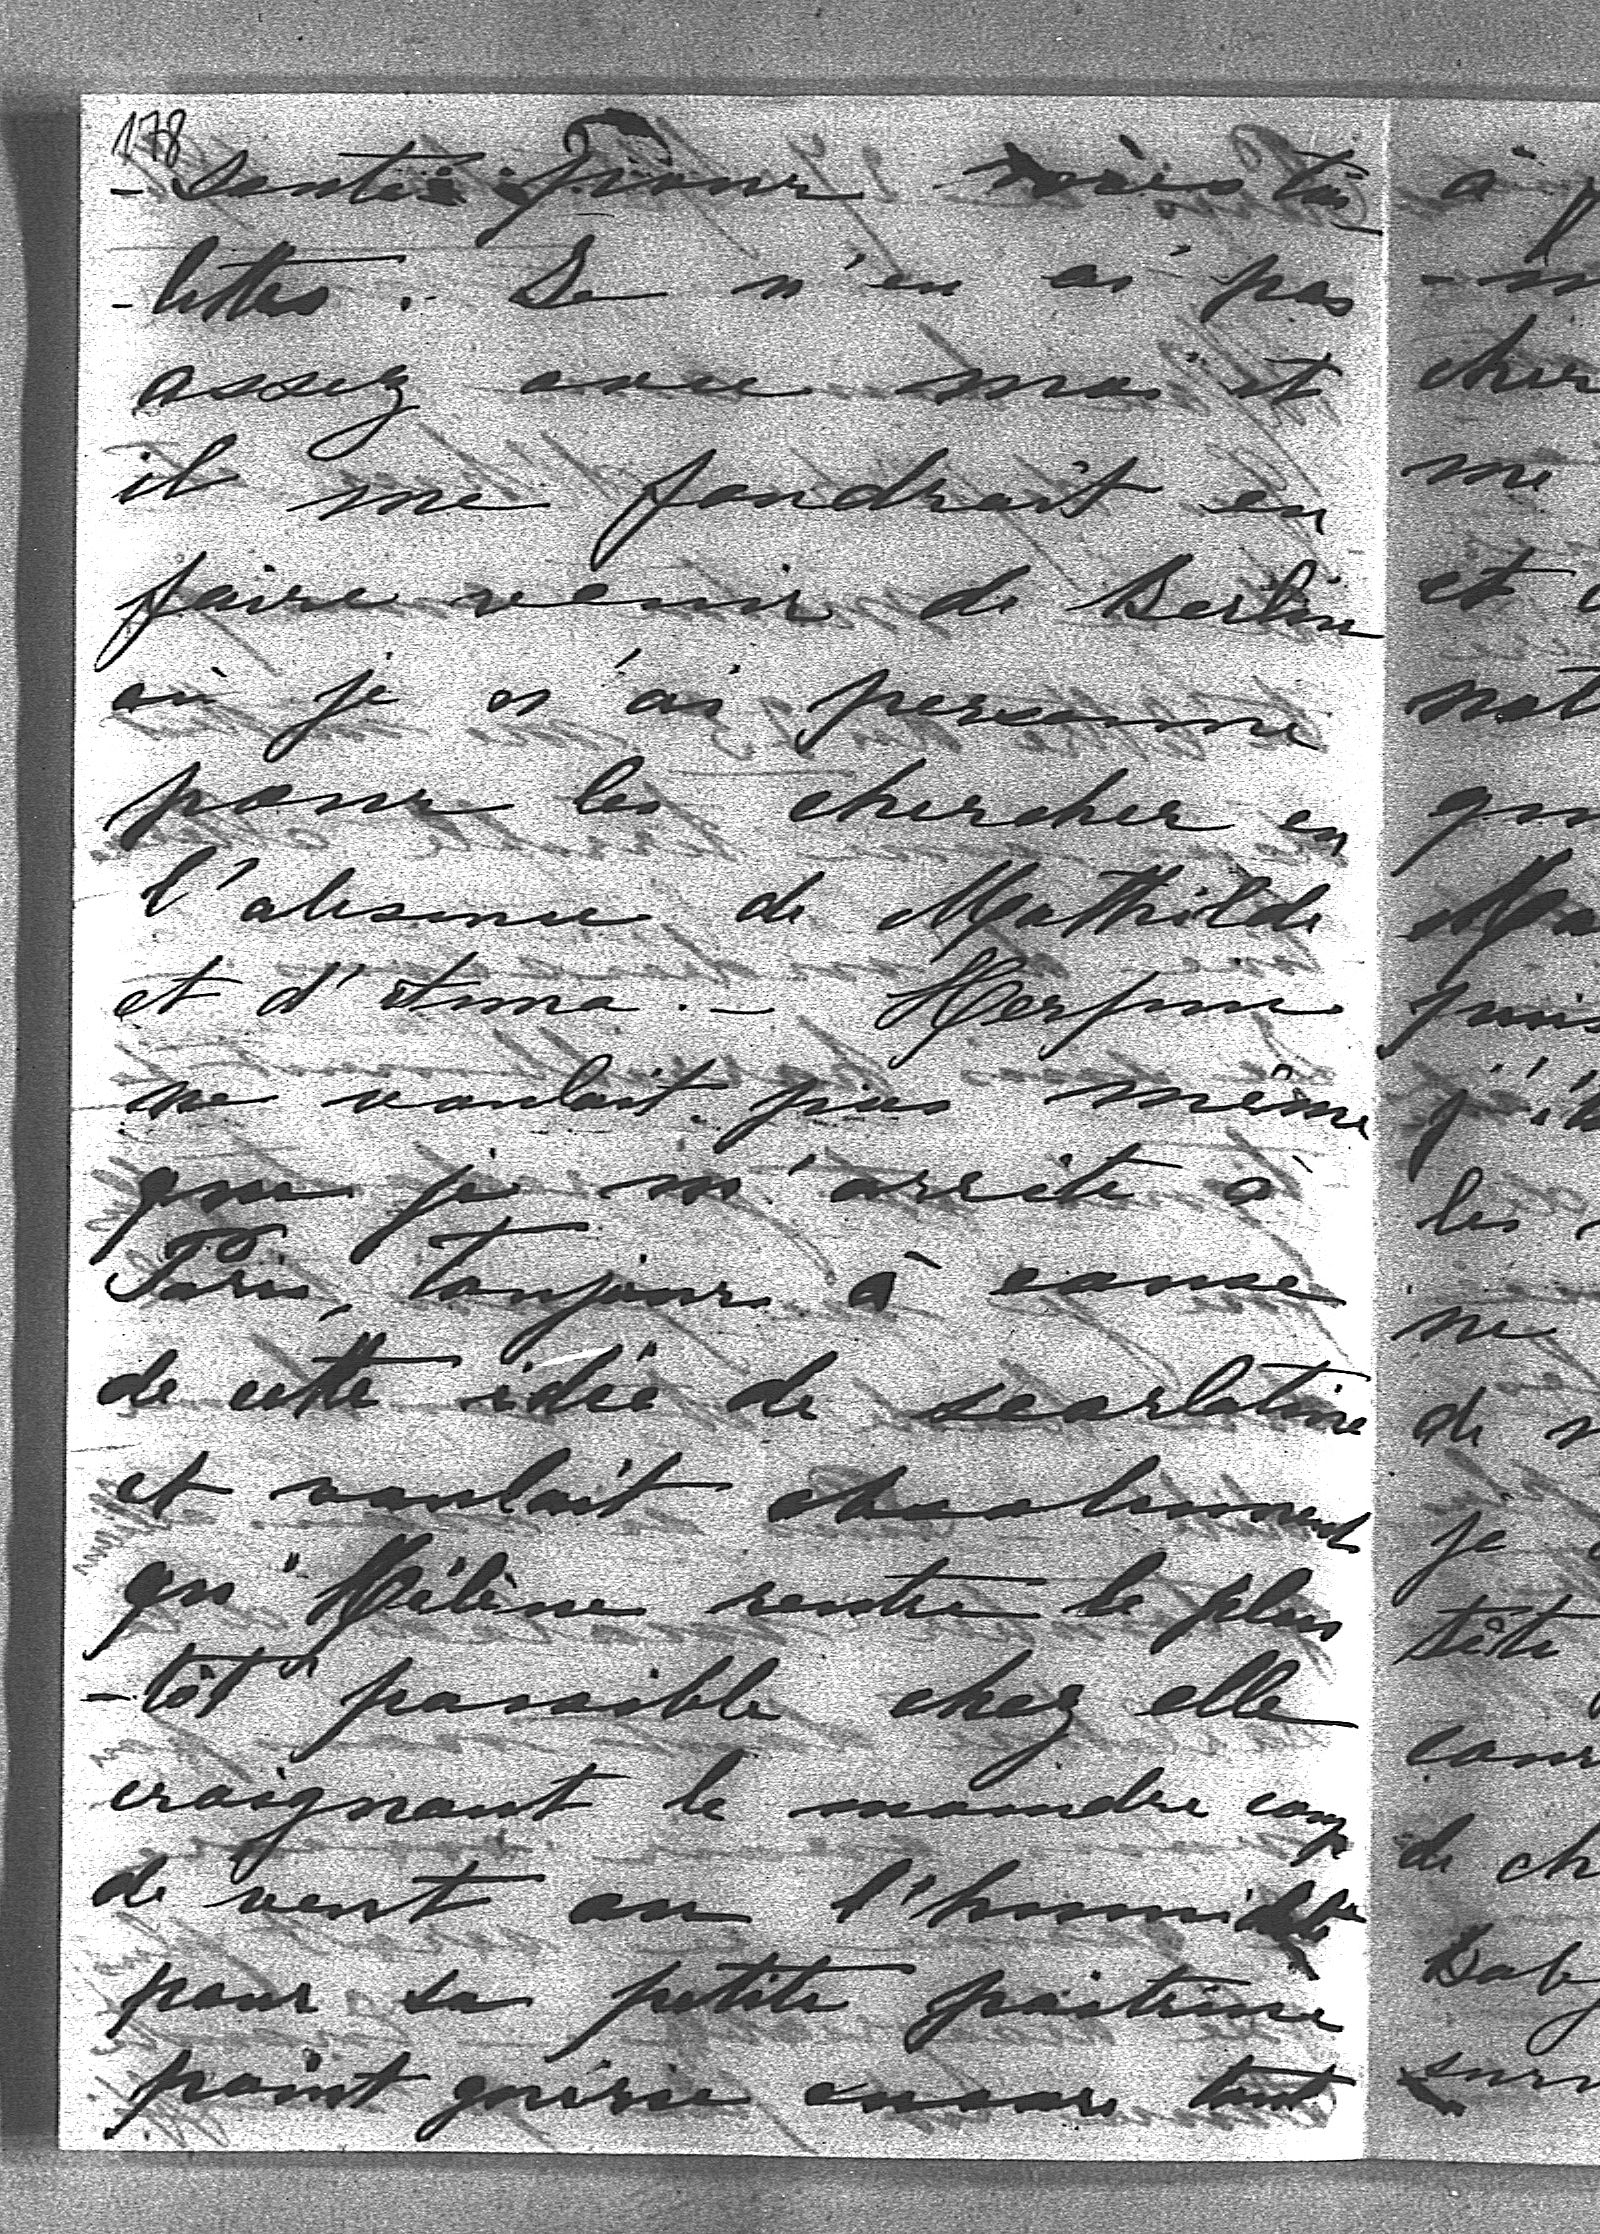 178
-sentes pour toi
-lettes. Je n'en ai pas
assez avec moi et
il me faudrait en
faire venir de Berlin
où je n'ai personne
pour les chercher en
l'absence de Mathilde
et d'Anna. —
ne voulait pas même
que je m'arrête à
Paris, toujours à cause
de cette idée de scarlatine
et voulait absolument
qu'Hélène rentre le plus
-tôt possible chez elle
craignant le moindre coup
de vent ou l'humidité
pour sa petite poitrine
point guérie encore tout
à
cher
me
et
not
qu
Ma
puis
les
ne
de
je
tête
cour
de ch